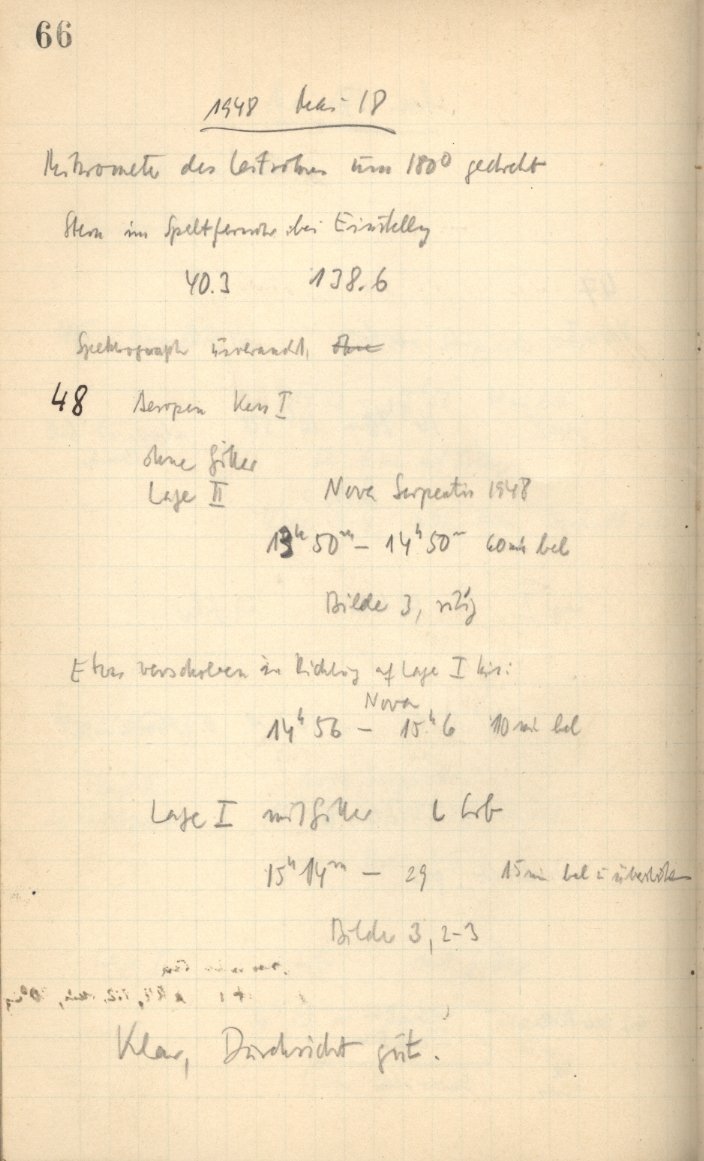 66
1948 Mai 18
Mikrometer des Leitrohres um 180° gedreht
Stern im Spaltfernrohr bei Einstellg
40.3 138.6
Spektrograph unverändt, ohne
48 Agfa Isopan Kess I
ohne Gitter
Lage II Nova Serpentis 1948
13h 50m – 14h 50m 60 min bel
Bilder 3, ruhig
Etwas verschoben in Richtung auf Lage I hin:
Nova
14h 56 – 15h 6 10 min bel
Lage I mit Gitter Lib
15h 14m – 29 15 min bel
Bilder 3, 2-3
Klar, Durchsicht gut.